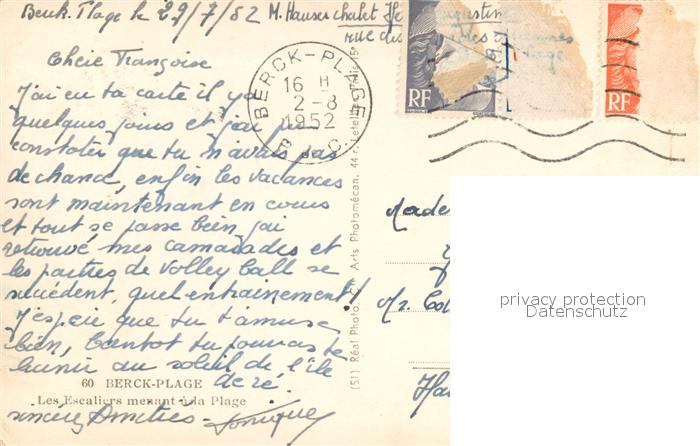 Berck Plage le 29/7/52 M. Hauser chalet
rue des
Chère Françoise
J'ai eu ta carte il y a
quelques jours et j'ai pu
constater que tu n'avais pas
de chance, enfin les vacances
sont maintenant en cours
et tout se passe bien, j'ai
retrouvé mes camarades et
les parties de volley ball se
succèdent, quel entrainement!
J'espère que tu t'amuse
bien, bientot tu pourras te
brunir au soleil de l'île
de ré.
60 BERCK-PLAGE
Les Escaliers menant à la Plage
sincères Amitiés
BERCK-PLAGE
16 H
2-8
1952
P. D. C.
RF
RF
(51) Réal Photo, Arts Photomécan. 44 r. Letellier Paris 15e
privacy protection
Datenschutz